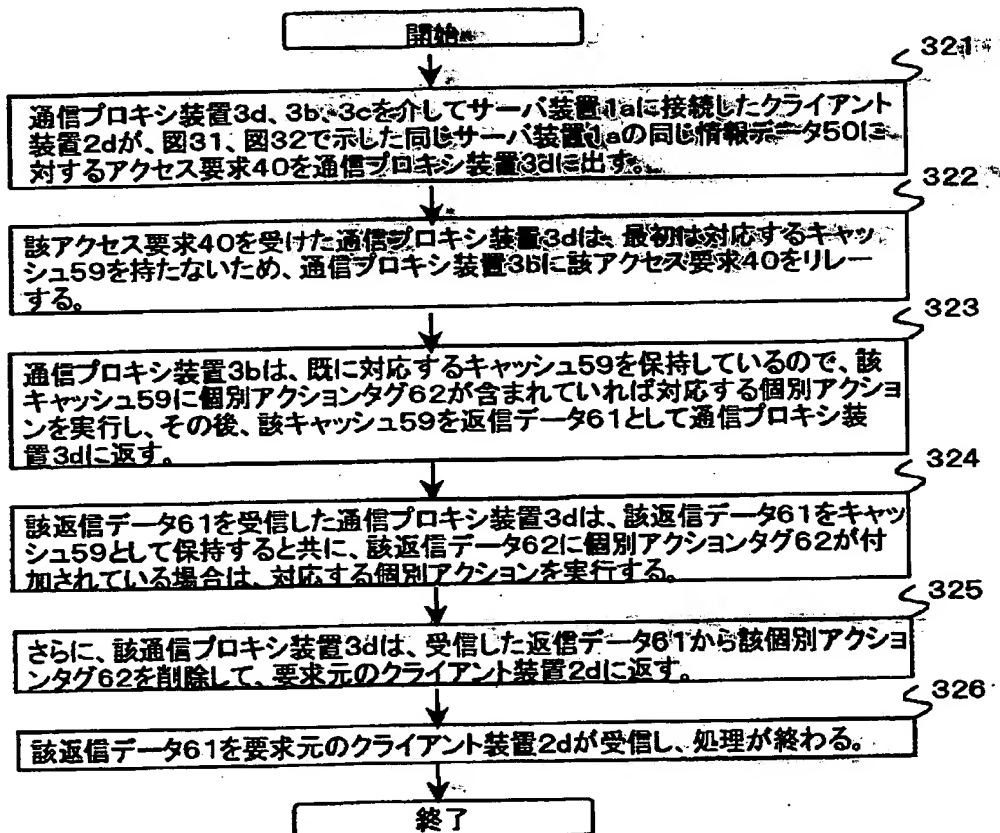 開始
321
通信プロキシ装置3d、3b、3cを介してサーバ装置1aに接続したクライアント
装置2dが、図31、図32で示した同じサーバ装置1aの同じ情報データ50に
対するアクセス要求40を通信プロキシ装置3dに出す。
322
該アクセス要求40を受けた通信プロキシ装置3dは、最初は対応するキャッ
シュ59を持たないため、通信プロキシ装置3bに該アクセス要求40をリレー
する。
323
通信プロキシ装置3bは、既に対応するキャッシュ59を保持しているので、該
キャッシュ59に個別アクションタグ62が含まれていれば対応する個別アクショ
ンを実行し、その後、該キャッシュ59を返信データ61として通信プロキシ装
置3dに返す。
324
該返信データ61を受信した通信プロキシ装置3dは、該返信データ61をキャッ
シュ59として保持すると共に、該返信データ62に個別アクションタグ62が付
加されている場合は、対応する個別アクションを実行する。
325
さらに、該通信プロキシ装置3dは、受信した返信データ61から該個別アクショ
ンタグ62を削除して、要求元のクライアント装置2dに返す。
326
該返信データ61を要求元のクライアント装置2dが受信し、処理が終わる。
終了